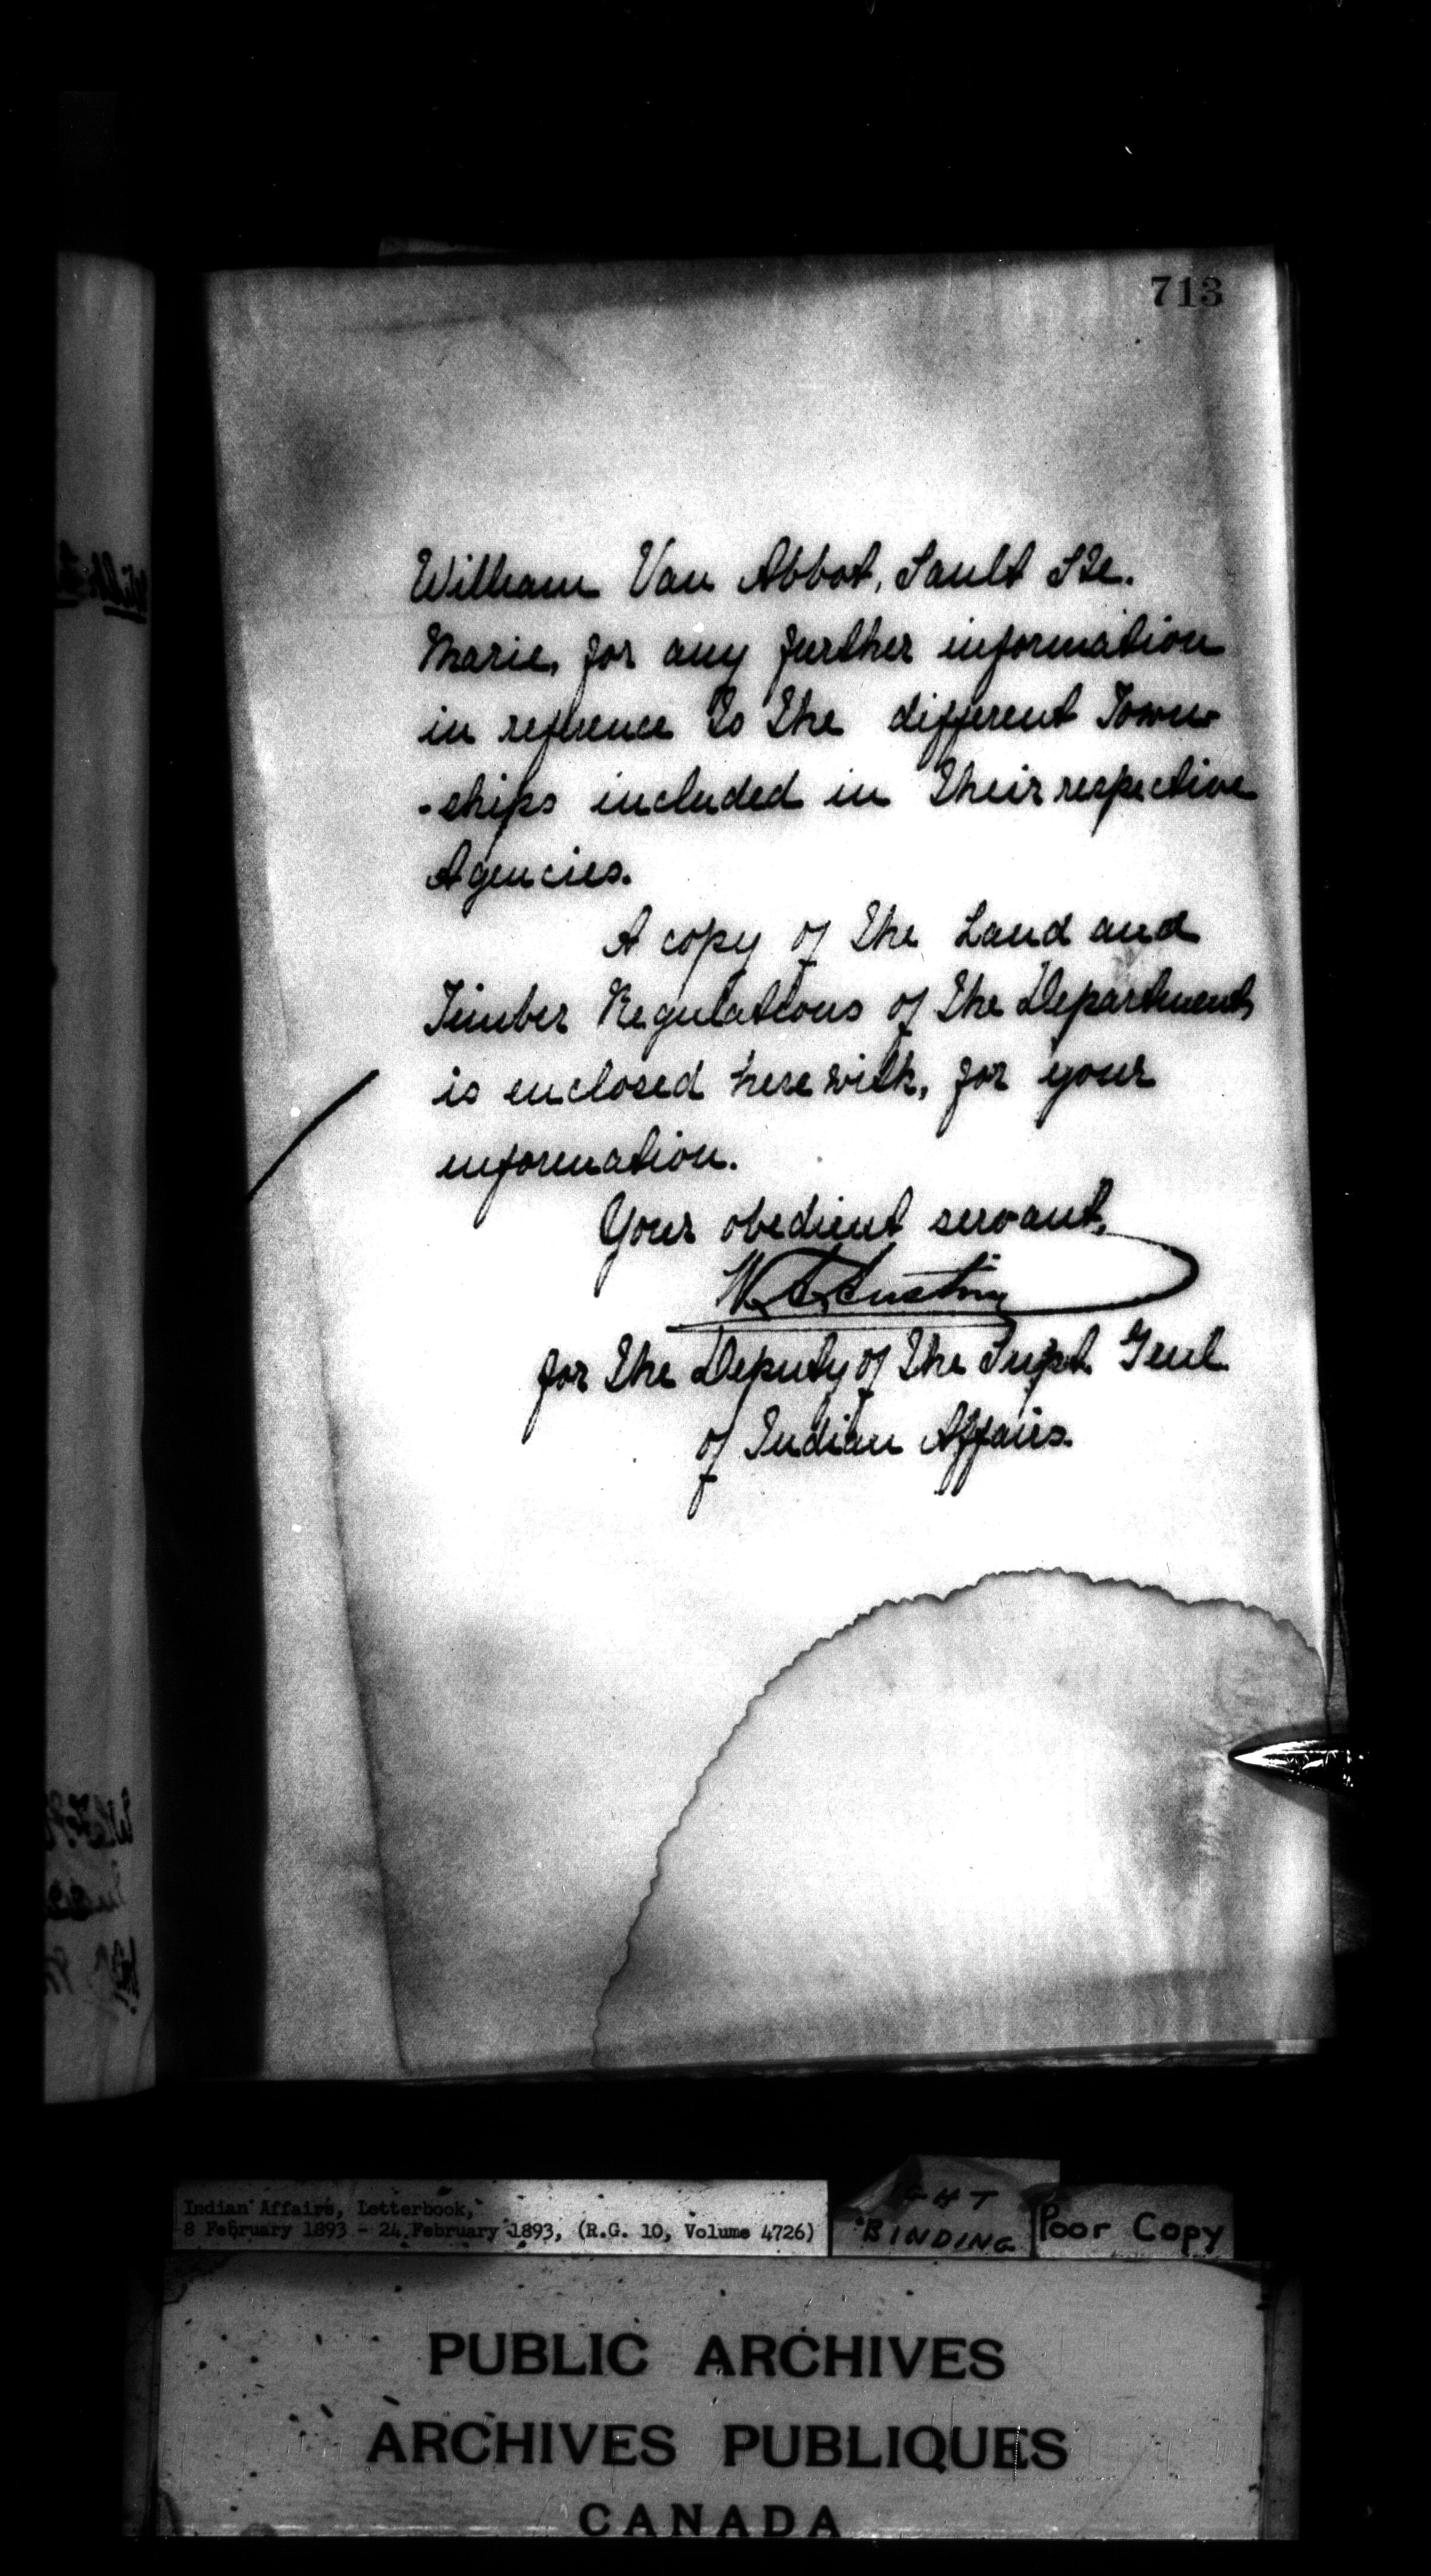 713
William Van Abbot, Sault Ste.
Marie, for any further information
in reference to the different Town-
-ships included in their respective
Agencies.
A copy of the Land and
Timber Regulations of the Department
is enclosed herewith, for your
information.
Your obedient servant,
W. A. Austin
for the Deputy of the Supt. Genl.
of Indian Affairs.
Indian Affairs, Letterbook,
8 February 1893 - 24 February 1893, (R.G. 10, Volume 4726)
BINDING
Poor Copy
PUBLIC ARCHIVES
ARCHIVES PUBLIQUES
CANADA